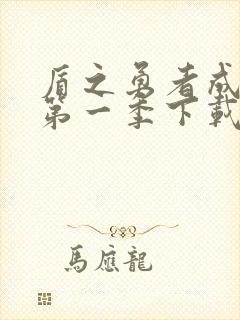 盾之勇者成
第一季下載
馬應龍